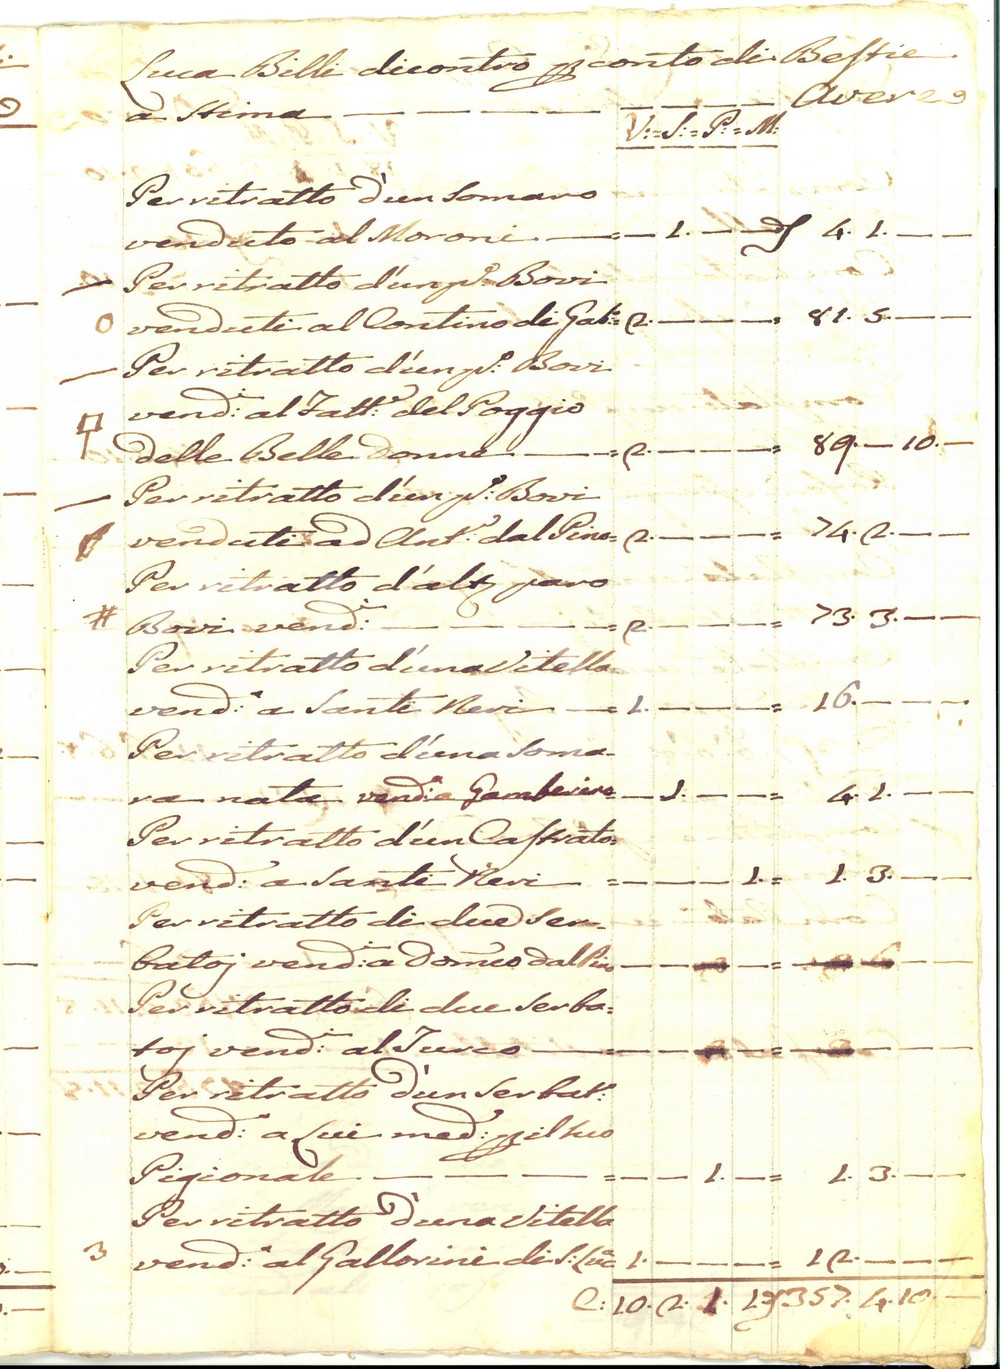 Luca Billi dicontro p conto di Bestie
a Stima — — — — Avere
V:=S:=P:=M:
Per ritratto d'un Somaro
venduto al Moroni — 1. — 4. 1. —
Per ritratto d'un p.º Bovi
venduti al Contino di Gab:= 2. — 81. 5. —
Per ritratto d'un p.º Bovi
vend:i al Fatt:e del Poggio
delle Belle donne — = 2. — = 89. — 10. —
Per ritratto d'un p.º Bovi
venduti ad Ant.º dal Pino = 2. — = 74. 2. —
Per ritratto d'alt paro
# Bovi vend:i — = 2. — = 73. 3. —
Per ritratto d'una Vitella
vend:a a Sante Neri — = 1. — = 16. —
Per ritratto d'una Soma
ra nata vend:a a Gamberino — 1. — = 4. 1. —
Per ritratto d'un Castrato
vend:o a Sante Neri = — 1. = 1. 3. —
Per ritratto di due Ser=
batoj vend:i a Dom:co dal Pino — = —
Per ritratto di due Serba=
toj vend:i al Turco — = —
Per ritratto d'un Serbat:
vend:o a Lui med:o p il suo
Pigionale — = — 1. — = 1. 3. —
Per ritratto d'una Vitella
3 vend:a al Gallorini di S: Luc 1. — = 12. —
C: 10. 2. 1. 1 357. 4. 10 —